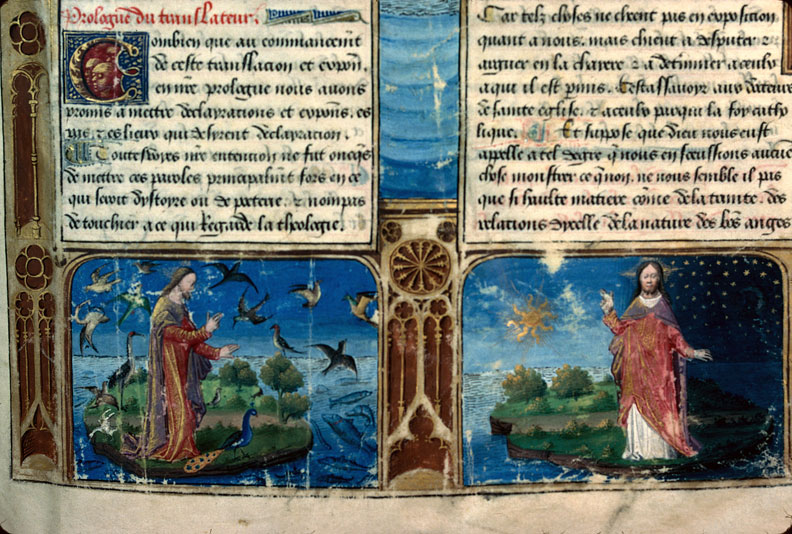 Prologue du translateur.
Combien que au commancemt
de ceste translacion et exposn,
en nre prologue nous avons
promis a mettre declaracions et exposns. es
pas. z es lieux qui desirent declaracion.
Toutesvoyes nre entention ne fut oncqs
de mettre ces paroles principalmt fors en ce
qui seroit dystoire ou de poeterie. z nom pas
de touchier a ce qui Regarde la theologie.
Car telz choses ne cheent pas en exposition
quant a nous. mais chient a desputer z
arguer en la chaiere z a detminer a ceulx
a qui il est pmis. Cestassavoir aux docteurs
de sainte eglise. z a ceulx par qui la foy catho
lique. Et suppose que dieu nous eust
appelle a tel degre q nous en sceussions aucune
chose monstrer ce q non. ne nous semble il pas
que si haulte matiere come de la trinite. des
relacions dycelle de la nature des bos anges